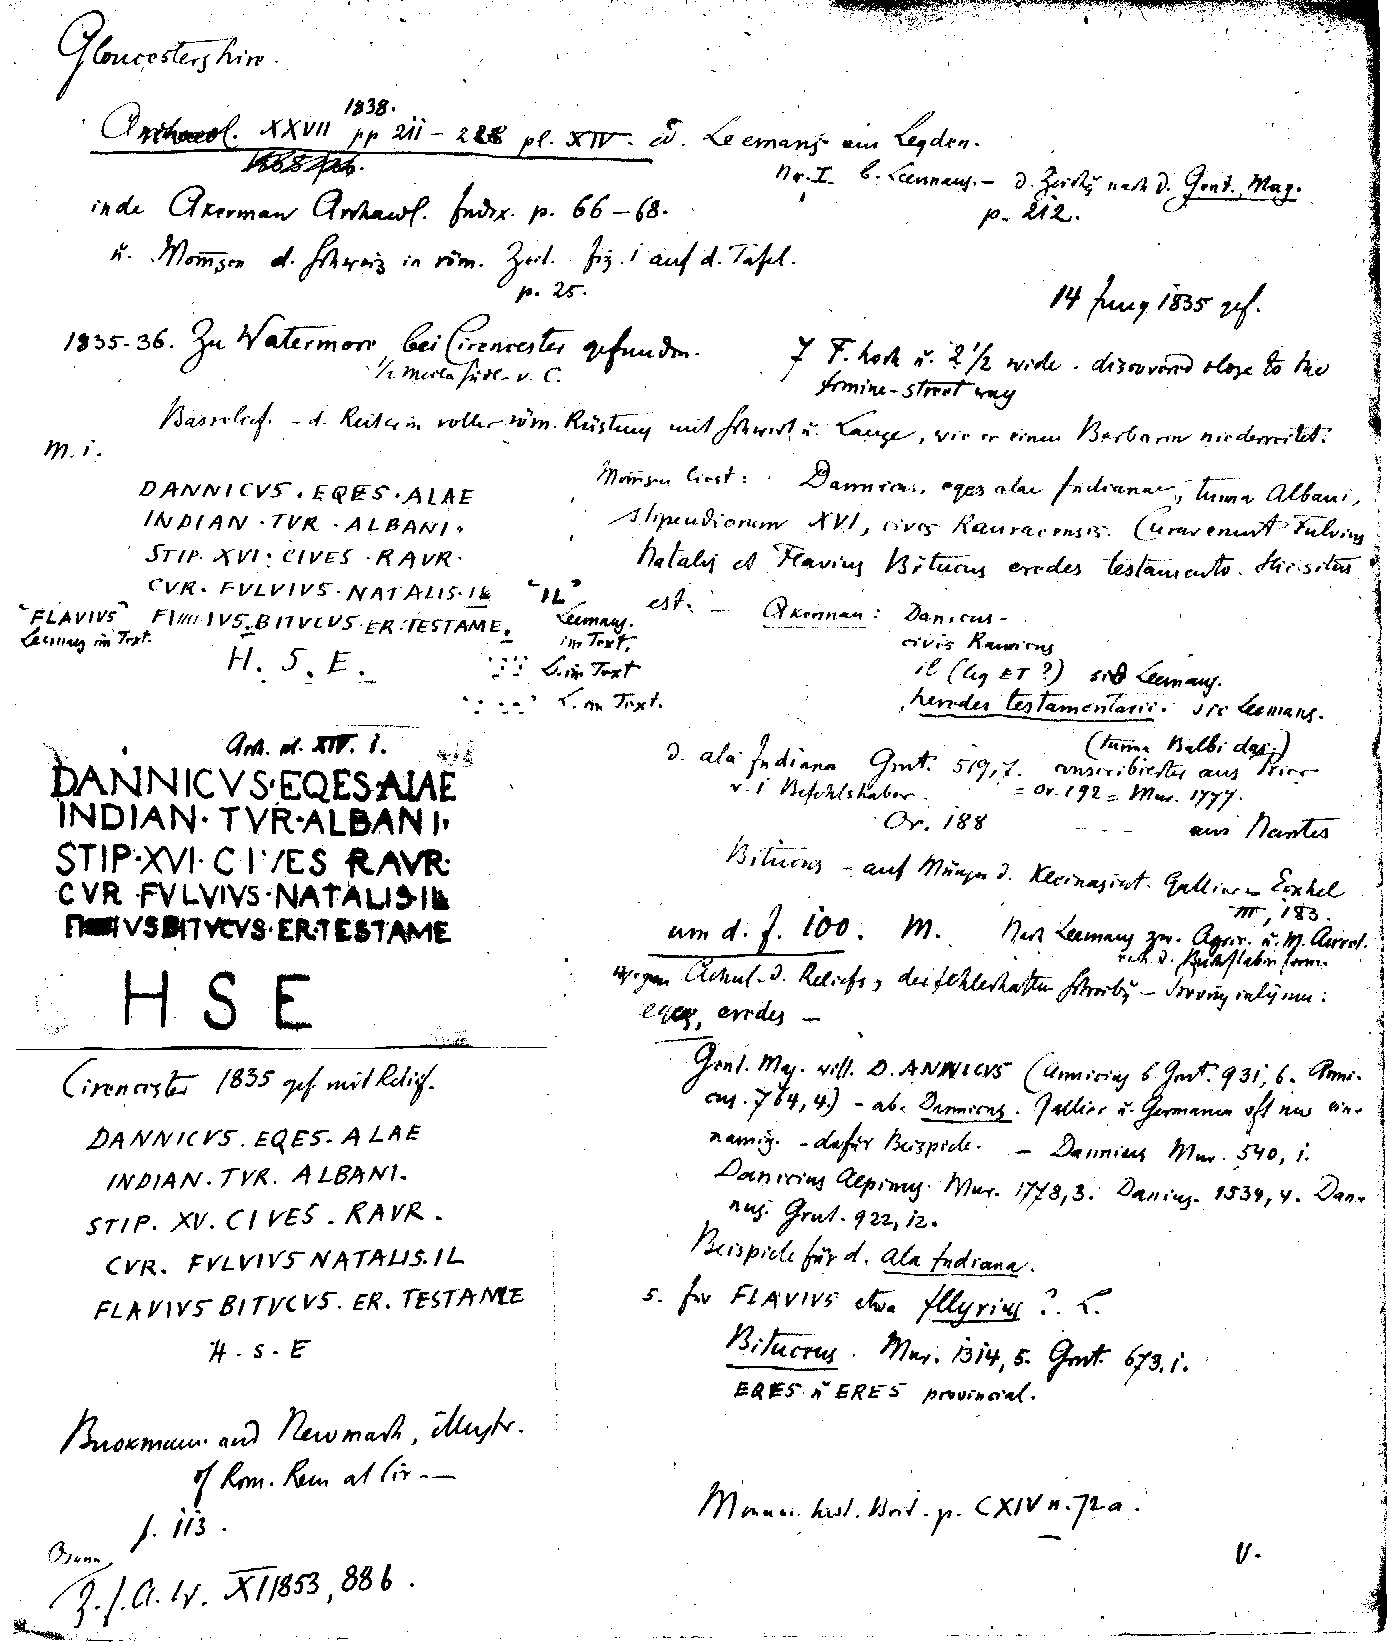 Gloucestershire.
1838.
Archaeol. XXVII pp 211 – 228 pl. XIV. Leemans in Leyden.
Nr. I. b. Leemans. – d. nach d. Gent. Mag.
p. 212.
inde Akerman Archaeol. Index. p. 66 – 68.
u. Mommsen d. Schweiz in röm. Zeit. fig. 1 auf d. Tafel.
p. 25.
14 1835 gef.
1835-36. Zu Watermore bei Cirencester gefunden.
1/2 Meile südl. v. C.
7 F. hoch u. 2 1/2 wide. discovered close to the
Ermine-street way
Basrelief. – d. Reiter in voller röm. Rüstung mit Schwert u. Lanze, wie er einen Barbaren niederreitet.
m. i.
DANNICVS . EQES . ALAE
INDIAN . TVR . ALBANI .
STIP. XVI . CIVES . RAVR .
CVR. FVLVIVS . NATALIS . IL "IL" Leemans. im Text.
"FLAVIUS" Leemans im Text. F IVS BITVCVS . ER . TESTAME.
H. S. E.
L. im Text
L. im Text.
Mommsen liest: Dannicus, eqes alae Indianae, turma Albani,
stipendiorum XVI, cives Rauracensis. Curaverunt Fulvius
Natalis et Flavius Bitucus eredes testamento. Hic situs
est. – Akerman: Danicus –
civis Rauricus
il (leg ET ?) sic Leemans.
heredes testamentarii. sic Leemans.
Arch. pl. XIV. 1.
DANNICVS . EQES . ALAE
INDIAN . TVR . ALBANI .
STIP . XVI . CIVES RAVR .
CVR . FVLVIVS . NATALIS . IL
IVS BITVCVS . ER . TESTAME
H S E
d. ala Indiana Grut. 519,7. aus Trier
(turma Balbi das.)
v. 1 Befehlshaber = Or. 192 = Mur. 1777.
Or. 188 aus Nantes
Bitucus – auf Münzen d. Gallien – Eckhel
III, 183.
um d. J. 100. M. Nach Leemans zw. Agric. u. M. Aurel.
nach d. Buchstabenform
wegen d. Reliefs, der fehlerhaften
eqes, eredes –
Gent. Mag. will D. ANNICVS (Annicius b Grut. 931, 6. Anni-
cus. 764, 4.) – ab. Dannicus. Gallier u. Germanen oft nur ein-
namig. – dafür Beispiele. – Dannius Mur. 540, 1.
Danicius Alpinus. Mur. 1778, 3. Danius. 1534, 4. Dan-
nus. Grut. 922, 12.
Beispiele für d. ala Indiana.
5. für FLAVIUS etwa Illyrius ? L.
Bitucus. Mur. 1314, 5. Grut. 673, 1.
EQES u ERES provincial.
Cirencester 1835 gef mit Relief.
DANNICVS . EQES . ALAE
INDIAN . TVR . ALBANI .
STIP . XV . CIVES . RAVR .
CVR . FVLVIVS NATALIS . IL
FLAVIVS BITVCVS . ER . TESTAME
H . S . E
Buckman and Newmarch, illustr.
of Rom. Rem at Cir –
f. 113.
Z. f. A. W. XI 1853, 886.
Monum. hist. Brit. p. CXIV n. 72 a.
V.